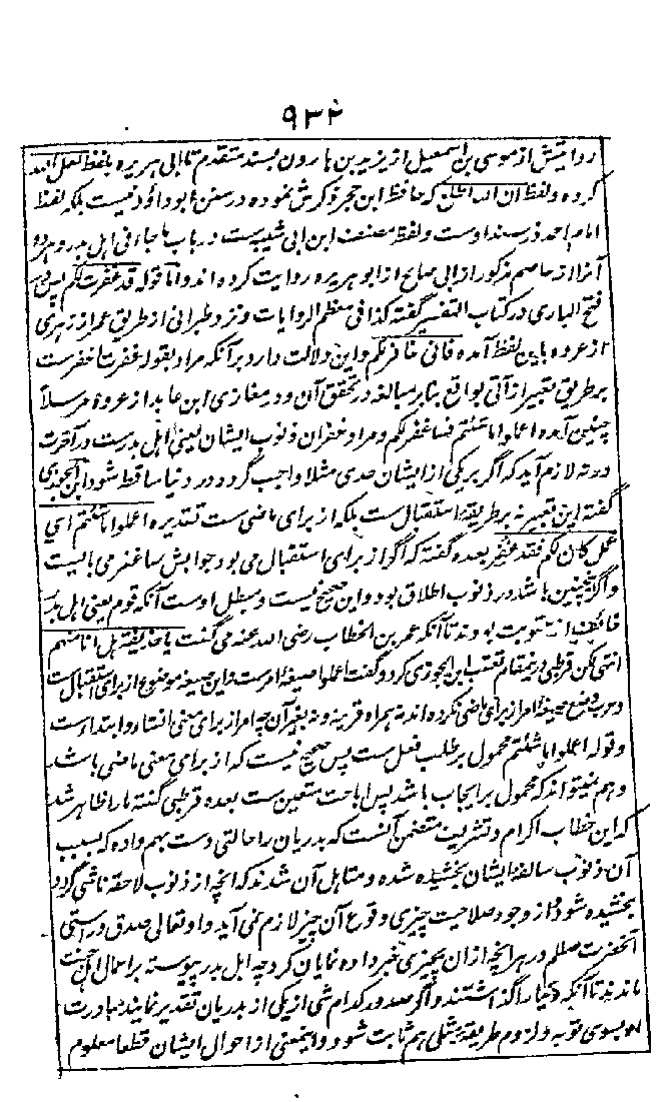 ۹۳۴
روایتش از موسی بن اسمعیل از یزید بن هارون بسند متقدم تا ابی هریره بلفظ لعل الله
کرده و لفظ ان الله اطلع که حافظ ابن حجر ذکرش نموده در سنن ابو داؤد نیست بلکه لفظ
امام احمد در مسند اوست و لفظ مصنف ابن ابی شیبه ست در باب ما جاء فی اهل بدر و هر دو
آنرا از عاصم مذکور از ابی صالح از ابو هریره روایت کرده اند و اما قوله قد غفرت لکم پس در
فتح الباری در کتاب التفسیر گفته کذا فی معظم الروایات و نزد طبرانی از طریق معمر از زهری
از عروه باین لفظ آمده فانی غافر لکم و این دلالت دارد بر آنکه مراد بقوله غفرت اغفر ست
بر طریق تعبیر از آتی بواقع بنا بر مبالغه در تحقق آن و در مغازی ابن عابد از عروه مرسلاً
چنین آمده اعملوا ما شئتم فساغفر لکم و مراد غفران ذنوب ایشان یعنی اهل بدرست در آخرت
ورنه لازم آید که اگر بر یکی از ایشان حدی مثلا واجب گردد در دنیا ساقط شود ابن الجوزی
گفته این تعبیر نه بر طریقه استقبال ست بلکه از برای ماضی ست تقدیره اعملوا ما شئتم ای
عمل کان لکم فقد غفر بعده گفته که اگر از برای استقبال می بود جوابش ساغفر می بایست
و اگر چنین باشد در ذنوب اطلاق بود و این صحیح نیست و مبطل اوست آنکه قوم یعنی اهل بدر
خائف از عقوبت بودند تا آنکه عمر بن الخطاب رضی الله عنه می گفت یا حذیفة هل انا منهم
انتهی لکن قرطبی درینمقام تعقب ابن الجوزی کرد و گفت اعملوا صیغه امرست و این صیغه موضوع از برای استقبال ست
و عرب وضع صیغه امر از برای ماضی نکرده اند نه بهمراه قرینه و نه بغیر آن چه امر از برای معنی انشاء و ابتداء ست
و قوله اعملوا ما شئتم محمول بر طلب فعل ست پس صحیح نیست که از برای معنی ماضی باشد
و هم نمیتواند که محمول بر ایجاب باشد پس اباحت متعین ست بعده قرطبی گفته ما را ظاهر شد
که این خطاب اکرام و تشریف متضمن آنست که بدریان را حالتی دست بهم داده که بسبب
آن ذنوب سالفه ایشان بخشیده شده و متاهل آن شدند که آنچه از ذنوب لاحقه ناشی گردد
بخشیده شود و از وجود صلاحیت چیزی وقوع آن چیز لازم نمی آید و او تعالی صدق و راستی
آنحضرت صلعم در هر آنچه از ان بچیزی خبر داده نمایان کرد چه اهل بدر پیوسته بر اعمال اهل جنت
ماندند تا آنکه دنیا را گذاشتند و اگر صدور کدام شی از یکی از بدریان تقدیر نمایند مبادرت
او بسوی توبه و لزوم طریقه مثلی هم ثابت شود و اینمعنی از احوال ایشان قطعا معلوم